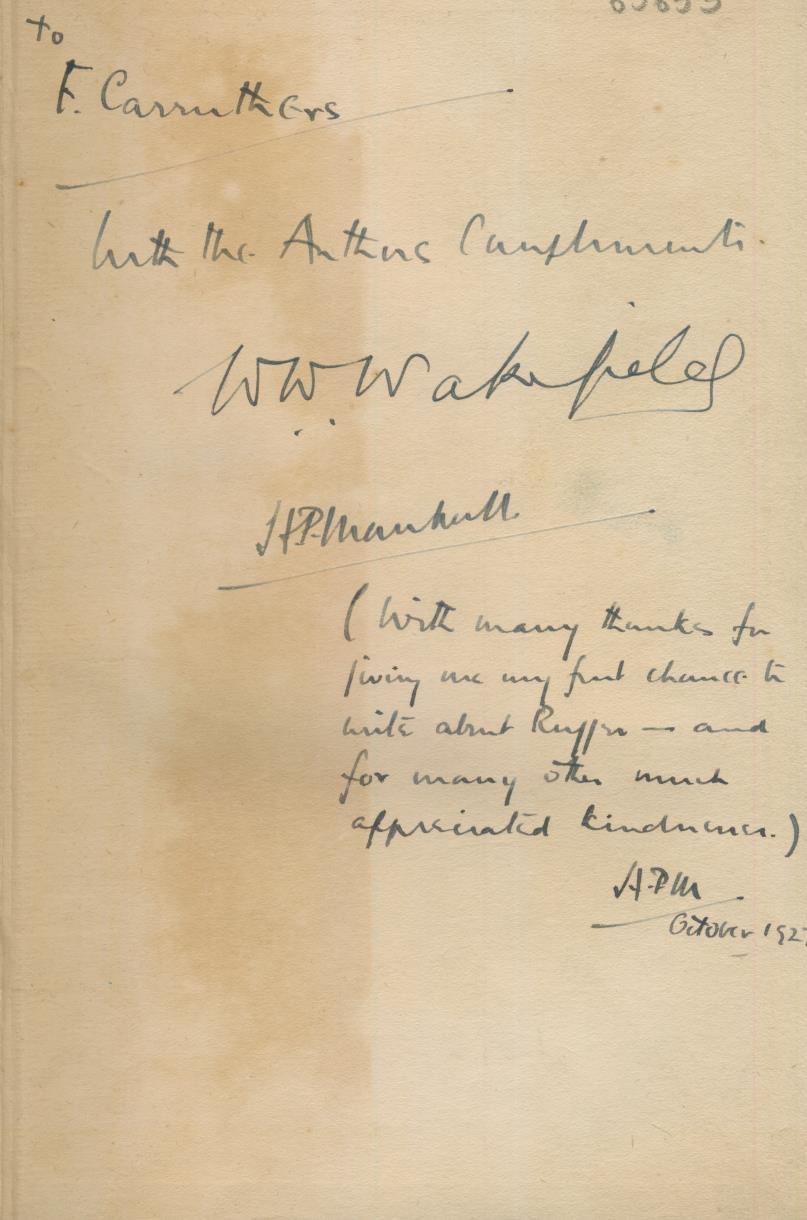 To
F. Carruthers
With the Authors Compliments.
W. W. Wakefield
H.P. Marshall.
(With many thanks for
giving me my first chance to
write about Rugger — and
for many other much
appreciated kindnesses.)
H.P.M
October 1927